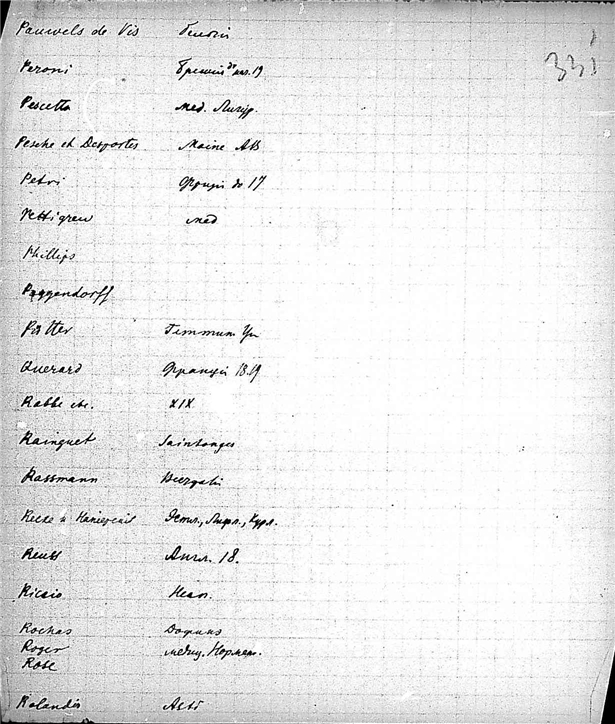 Pauwels de Vis Бельгія
331
Peroni Брешія до нач. 19
Pescetto мед. Лигур.
Pesche et Desportes Maine AB
Petri Фрисл до 17
Pettigrew мед
Phillips
Poggendorff
Pütter Геттинг. Ун
Querard Франція 18.19
Rabbe etc. XIX
Rainguet Saintonges
Rassmann
Recke u Napiersky Эстл., Лифл., Курл.
Reuss Англ. 18.
Riccio Неап.
Rochas Дофинэ
Roger медиц. Норман.
Rose
Rolandis Asti